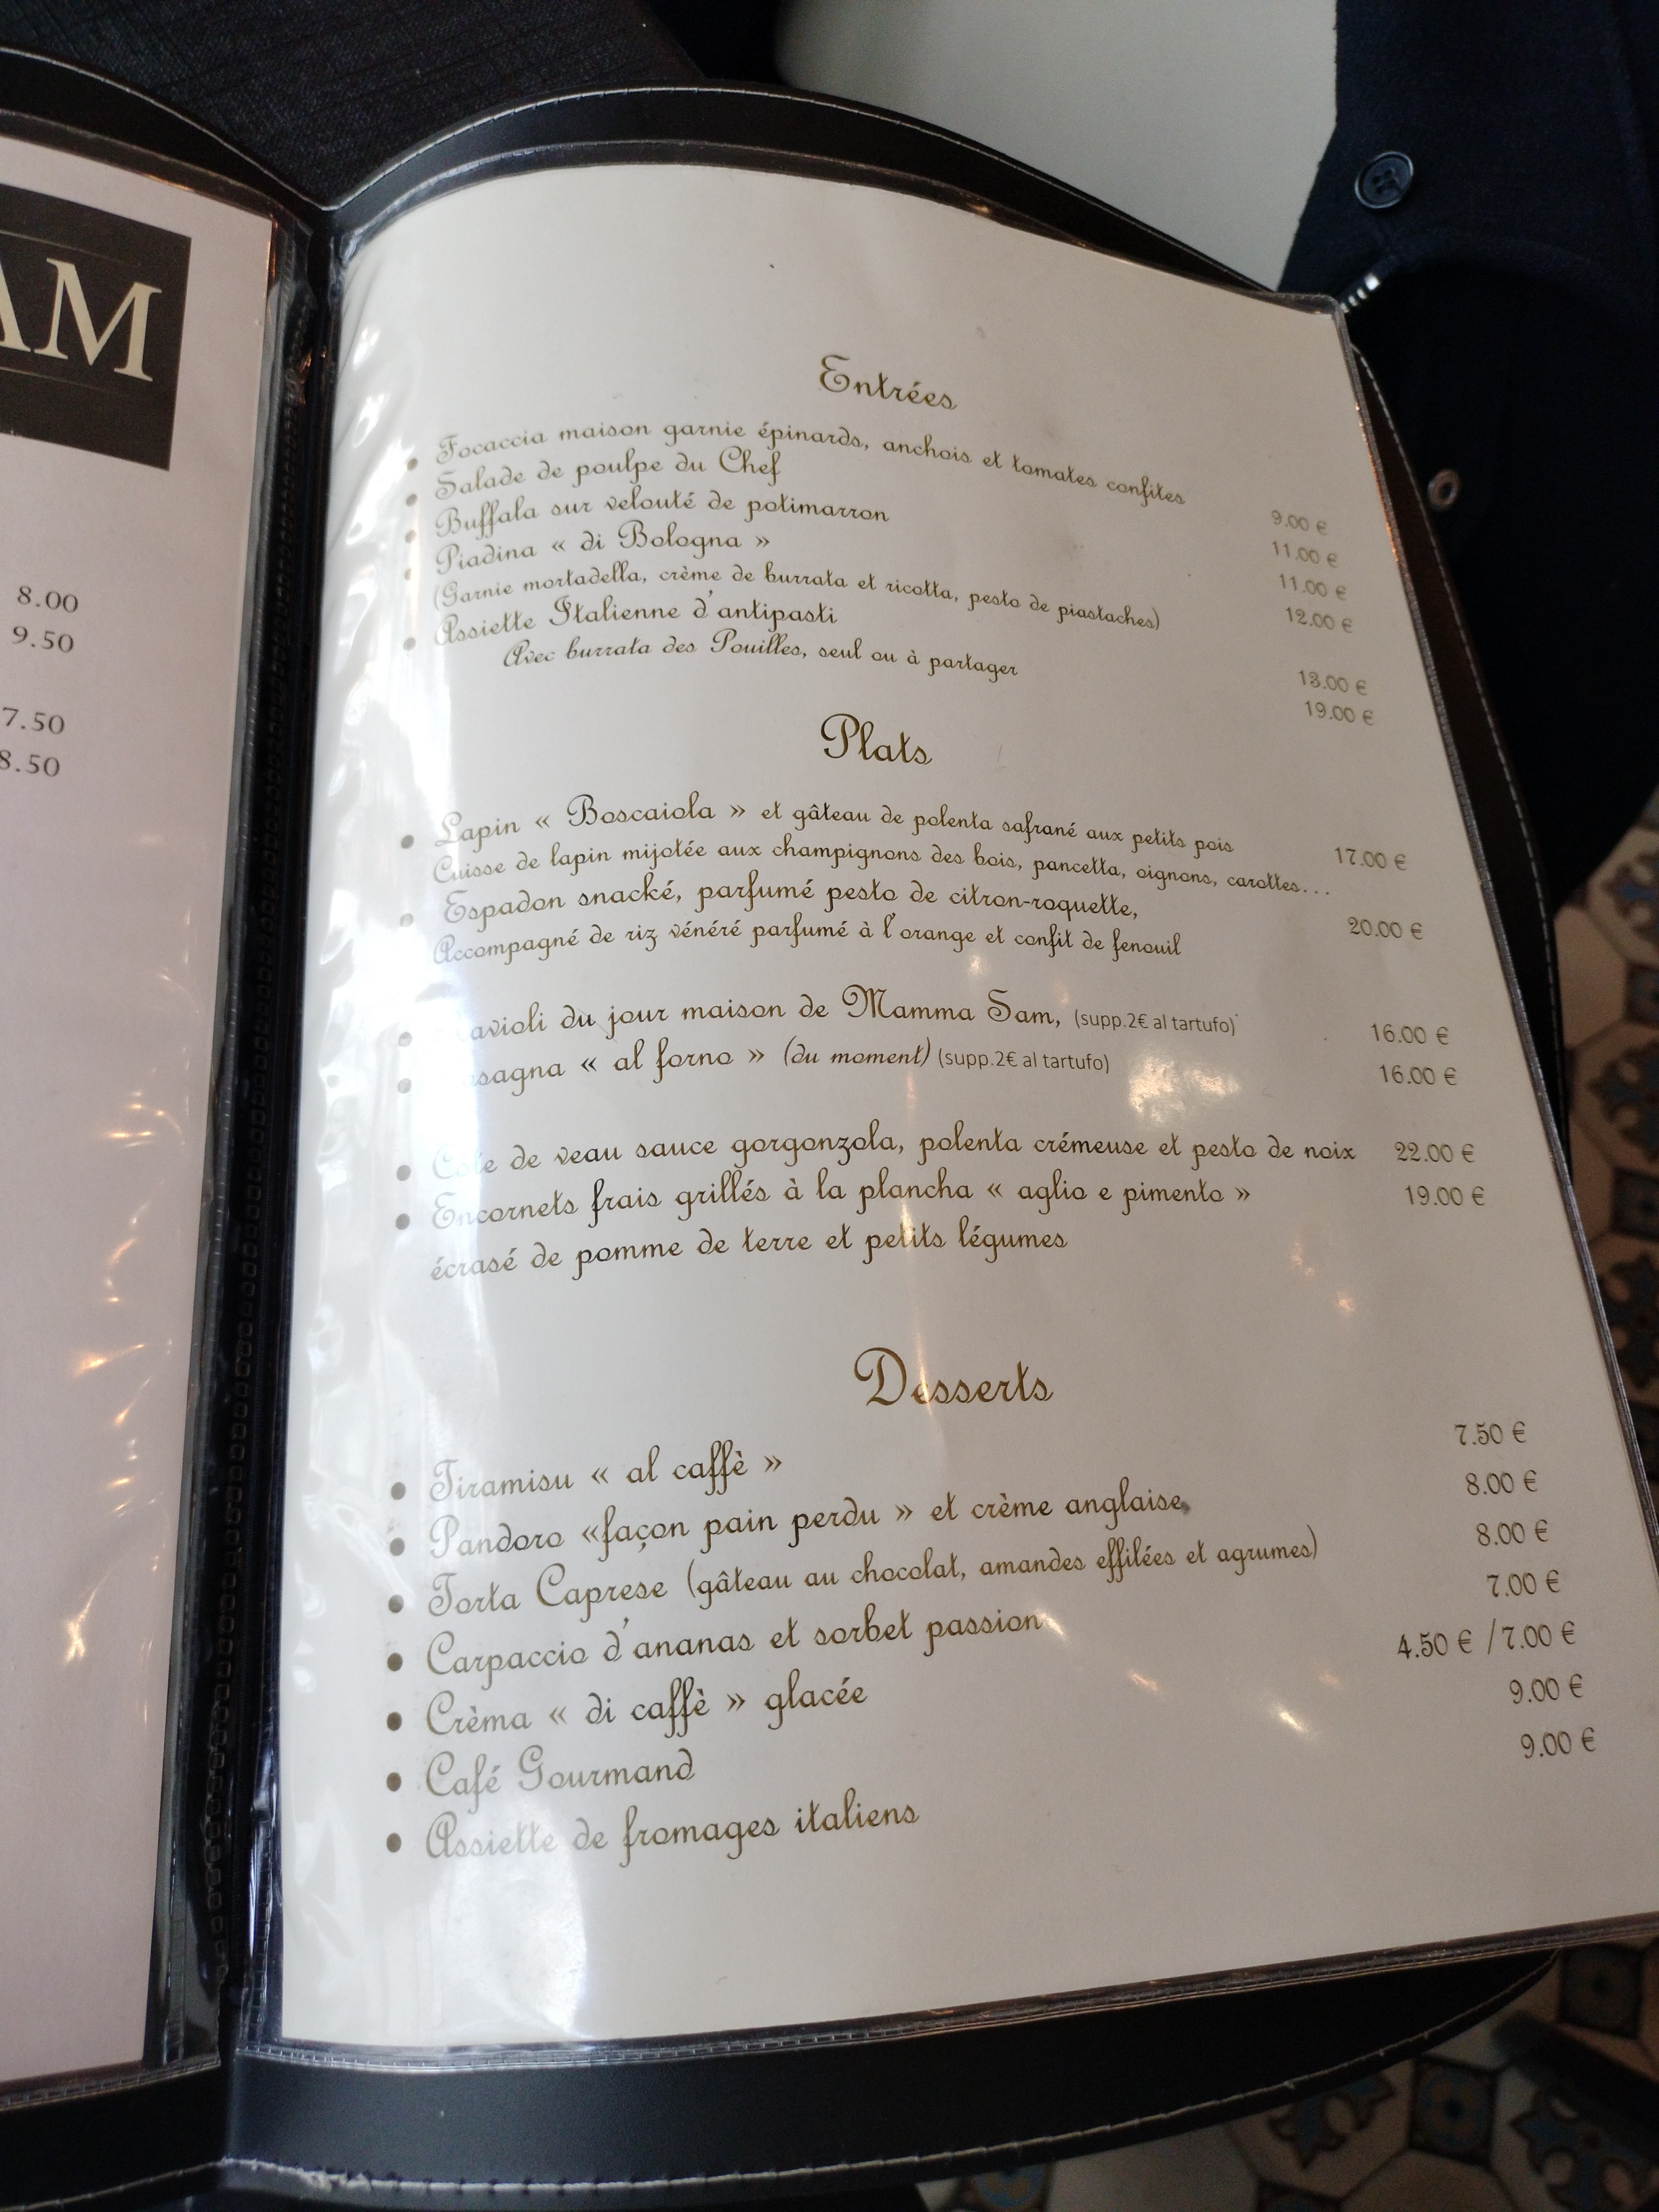 AM
8.00
9.50
7.50
8.50
Entrées
Focaccia maison garnie épinards, anchois et tomates confites 9.00 €
Salade de poulpe du Chef 11.00 €
Buffala sur velouté de potimarron 11.00 €
Piadina « di Bologna » 12.00 €
(Garnie mortadella, crème de burrata et ricotta, pesto de piastaches)
Assiette Italienne d'antipasti 13.00 €
Avec burrata des Pouilles, seul ou à partager 19.00 €
Plats
Lapin « Boscaiola » et gâteau de polenta safrané aux petits pois 17.00 €
Cuisse de lapin mijotée aux champignons des bois, pancetta, oignons, carottes...
Espadon snacké, parfumé pesto de citron-roquette, 20.00 €
Accompagné de riz vénéré parfumé à l'orange et confit de fenouil
avioli du jour maison de Mamma Sam, (supp.2€ al tartufo) 16.00 €
sagna « al forno » (du moment) (supp.2€ al tartufo) 16.00 €
Cote de veau sauce gorgonzola, polenta crémeuse et pesto de noix 22.00 €
Encornets frais grillés à la plancha « aglio e pimento » 19.00 €
écrasé de pomme de terre et petits légumes
Desserts
Tiramisu « al caffè » 7.50 €
Pandoro «façon pain perdu » et crème anglaise 8.00 €
Torta Caprese (gâteau au chocolat, amandes effilées et agrumes) 8.00 €
Carpaccio d'ananas et sorbet passion 7.00 €
Crèma « di caffè » glacée 4.50 € /7.00 €
Café Gourmand 9.00 €
Assiette de fromages italiens 9.00 €